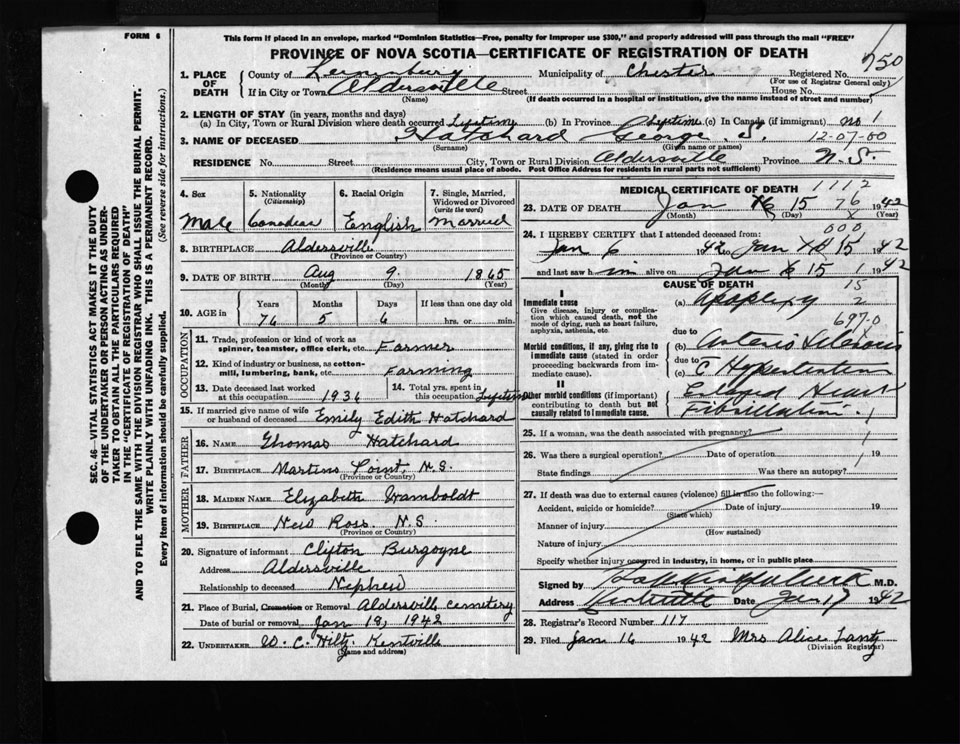 FORM 6
This form if placed in an envelope, marked "Dominion Statistics—Free, penalty for improper use $300," and properly addressed will pass through the mail "FREE"
PROVINCE OF NOVA SCOTIA—CERTIFICATE OF REGISTRATION OF DEATH
750
1. PLACE OF DEATH
County of Lunenburg Municipality of Chester Registered No.
(For use of Registrar General only)
If in City or Town Aldersville Street House No.
(Name) (If death occurred in a hospital or institution, give the name instead of street and number)
2. LENGTH OF STAY (in years, months and days)
(a) In City, Town or Rural Division where death occurred Lifetime (b) In Province Lifetime (c) In Canada (if immigrant) No 1
3. NAME OF DECEASED Hatchard George S. 12-07-00
(Surname) (Given name or names)
RESIDENCE No. Street City, Town or Rural Division Aldersville Province N.S.
(Residence means usual place of abode. Post Office Address for residents in rural parts not sufficient)
4. Sex Male
5. Nationality (Citizenship) Canadian
6. Racial Origin English
7. Single, Married, Widowed or Divorced (write the word) Married
8. BIRTHPLACE Aldersville
(Province or Country)
9. DATE OF BIRTH Aug 9. 1865
(Month) (Day) (Year)
10. AGE in Years Months Days If less than one day old
76 5 6 hrs. or min.
OCCUPATION
11. Trade, profession or kind of work as spinner, teamster, office clerk, etc. Farmer
12. Kind of industry or business, as cotton-mill, lumbering, bank, etc. Farming
13. Date deceased last worked at this occupation 1936
14. Total yrs. spent in this occupation Lifetime
15. If married give name of wife or husband of deceased Emily Edith Hatchard
FATHER
16. NAME Thomas Hatchard
17. BIRTHPLACE Martins Point, N.S.
(Province or Country)
MOTHER
18. MAIDEN NAME Elizabeth Wamboldt
19. BIRTHPLACE New Ross. N.S.
(Province or Country)
20. Signature of informant Clifton Burgoyne
Address Aldersville
Relationship to deceased Nephew
21. Place of Burial, Cremation or Removal Aldersville Cemetery
Date of burial or removal Jan 18, 1942
22. UNDERTAKER W. C. Hiltz Kentville
(Name and address)
MEDICAL CERTIFICATE OF DEATH 1112
23. DATE OF DEATH Jan 16 15 76 1942
(Month) (Day) (Year)
000
24. I HEREBY CERTIFY that I attended deceased from:
Jan 6 1942 to Jan 15, 1942
and last saw him alive on Jan 15 1942
CAUSE OF DEATH 15
I
Immediate cause (a) Apoplexy 2
Give disease, injury or complication which caused death, not the mode of dying, such as heart failure, asphyxia, asthenia, etc.
697-0
due to
Morbid conditions, if any, giving rise to immediate cause (stated in order proceeding backwards from immediate cause).
(b) Arterio Sclerosis
due to
(c) c Hypertension
II
Other morbid conditions (if important) contributing to death but not causally related to immediate cause.
Enlarged Heart
Fibrillation
25. If a woman, was the death associated with pregnancy?
26. Was there a surgical operation? Date of operation 19
State findings Was there an autopsy?
27. If death was due to external causes (violence) fill in also the following:
Accident, suicide or homicide? Date of injury 19
(State which)
Manner of injury
(How sustained)
Nature of injury
Specify whether injury occurred in industry, in home, or in public place
Signed by M.D.
Address Kentville Date Jan 17 1942
28. Registrar's Record Number 117
29. Filed Jan 16 1942 Mrs Alice Lantz
(Division Registrar)
SEC. 46—VITAL STATISTICS ACT MAKES IT THE DUTY
OF THE UNDERTAKER OR PERSON ACTING AS UNDER-
TAKER TO OBTAIN ALL THE PARTICULARS REQUIRED
IN THE "CERTIFICATE OF REGISTRATION OF DEATH"
AND TO FILE THE SAME WITH THE DIVISION REGISTRAR WHO SHALL ISSUE THE BURIAL PERMIT.
WRITE PLAINLY WITH UNFADING INK. THIS IS A PERMANENT RECORD.
Every item of information should be carefully supplied. (See reverse side for instructions.)